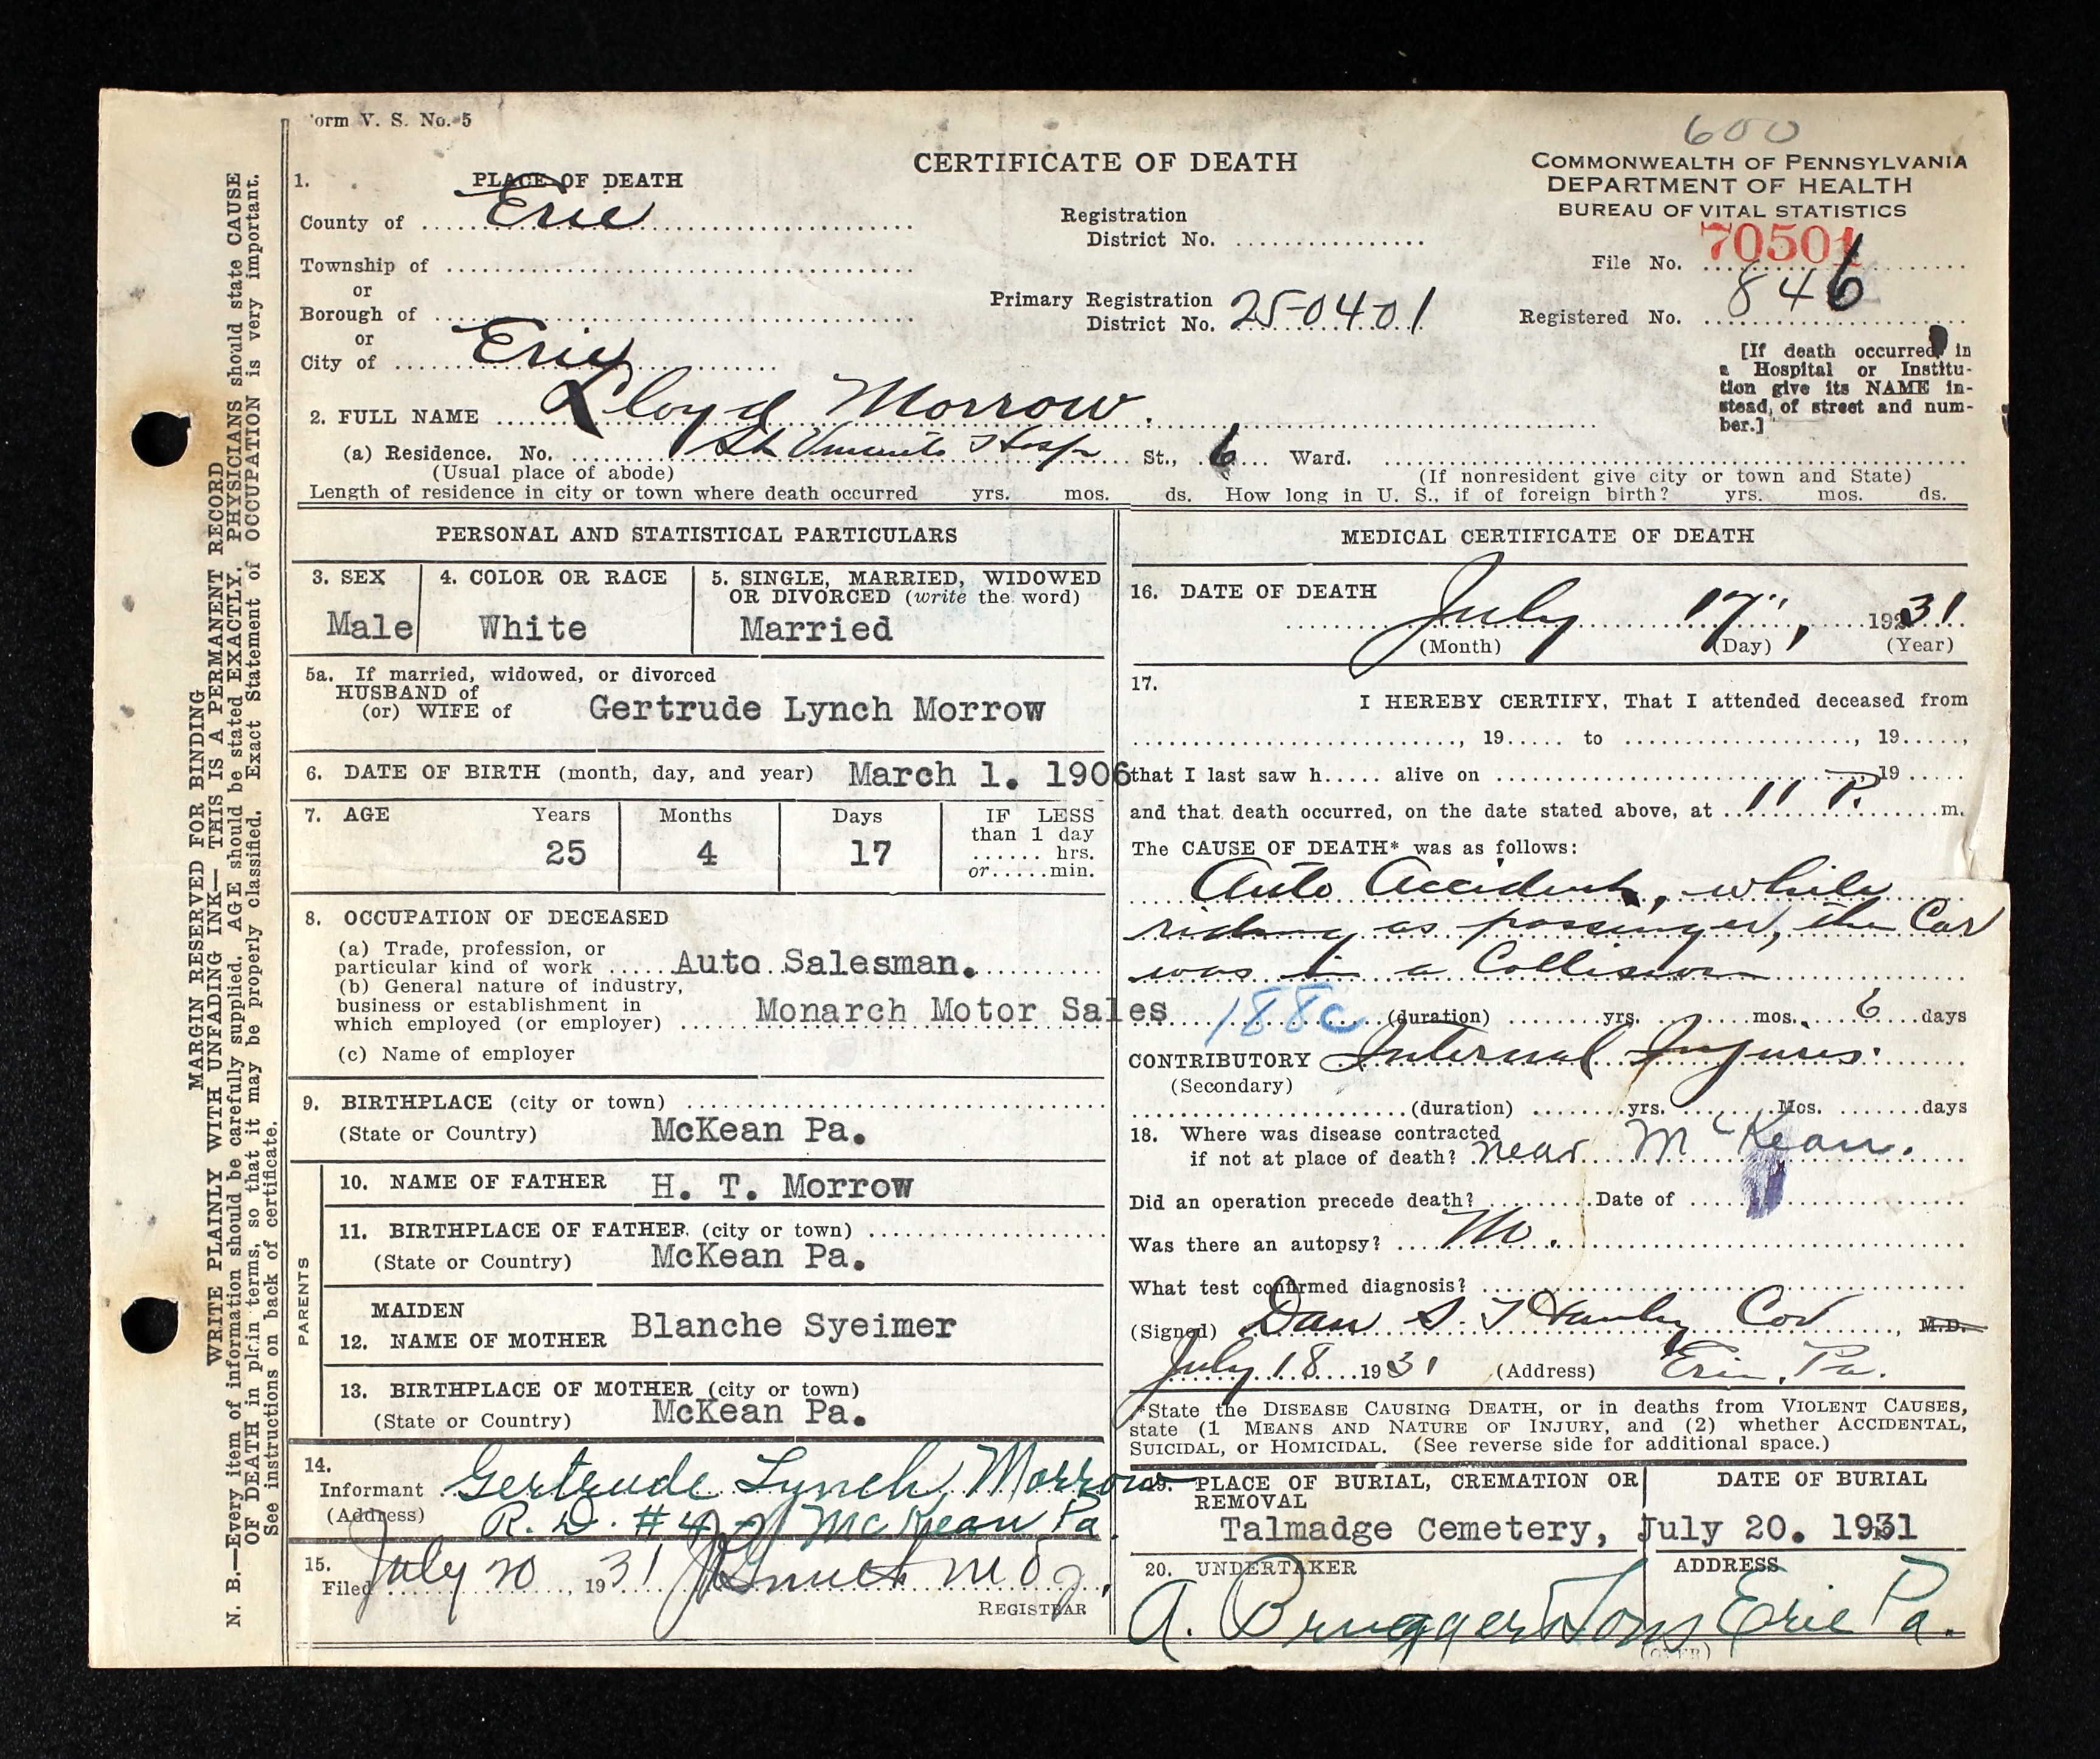 Form V. S. No. 5
600
CERTIFICATE OF DEATH
COMMONWEALTH OF PENNSYLVANIA
DEPARTMENT OF HEALTH
BUREAU OF VITAL STATISTICS
1. PLACE OF DEATH
County of Erie
Township of
or
Borough of
or
City of Erie
Registration
District No.
Primary Registration
District No. 250401
File No. 70501
Registered No. 846
[If death occurred in
a Hospital or Institu-
tion give its NAME in-
stead, of street and num-
ber.]
2. FULL NAME Lloyd Morrow.
(a) Residence. No. St Vincents Hosp St., 6 Ward.
(Usual place of abode) (If nonresident give city or town and State)
Length of residence in city or town where death occurred yrs. mos. ds. How long in U. S., if of foreign birth? yrs. mos. ds.
PERSONAL AND STATISTICAL PARTICULARS
3. SEX
Male
4. COLOR OR RACE
White
5. SINGLE, MARRIED, WIDOWED
OR DIVORCED (write the word)
Married
5a. If married, widowed, or divorced
HUSBAND of
(or) WIFE of Gertrude Lynch Morrow
6. DATE OF BIRTH (month, day, and year) March 1. 1906
7. AGE Years Months Days IF LESS
than 1 day
hrs.
or min.
25 4 17
8. OCCUPATION OF DECEASED
(a) Trade, profession, or
particular kind of work Auto Salesman.
(b) General nature of industry,
business or establishment in
which employed (or employer) Monarch Motor Sales
(c) Name of employer
9. BIRTHPLACE (city or town)
(State or Country) McKean Pa.
PARENTS
10. NAME OF FATHER H. T. Morrow
11. BIRTHPLACE OF FATHER (city or town)
(State or Country) McKean Pa.
MAIDEN
12. NAME OF MOTHER Blanche Syeimer
13. BIRTHPLACE OF MOTHER (city or town)
(State or Country) McKean Pa.
14.
Informant Gertrude Lynch Morrow
(Address) R. D. #4 McKean Pa.
15.
Filed July 20, 1931
REGISTRAR
MEDICAL CERTIFICATE OF DEATH
16. DATE OF DEATH
July 17, 19231
(Month) (Day) (Year)
17.
I HEREBY CERTIFY, That I attended deceased from
, 19 to , 19 ,
that I last saw h alive on , 19
and that death occurred, on the date stated above, at 11 P. m.
The CAUSE OF DEATH* was as follows:
Auto Accident, while
riding as passenger, the Car
was in a Collision
188c (duration) yrs. mos. 6 days
CONTRIBUTORY Internal Injuries.
(Secondary)
(duration) yrs. Mos. days
18. Where was disease contracted
if not at place of death? near McKean.
Did an operation precede death? Date of
Was there an autopsy? No.
What test confirmed diagnosis?
(Signed) Dan S. Hanley Cor , M.D.
July 18 1931 (Address) Erie, Pa.
*State the DISEASE CAUSING DEATH, or in deaths from VIOLENT CAUSES,
state (1 MEANS AND NATURE OF INJURY, and (2) whether ACCIDENTAL,
SUICIDAL, or HOMICIDAL. (See reverse side for additional space.)
19. PLACE OF BURIAL, CREMATION OR
REMOVAL
Talmadge Cemetery,
DATE OF BURIAL
July 20. 1931
20. UNDERTAKER
A. Brugger Sons
ADDRESS
Erie Pa.
(OVER)
MARGIN RESERVED FOR BINDING
WRITE PLAINLY WITH UNFADING INK— THIS IS A PERMANENT RECORD
N. B.—Every item of information should be carefully supplied. AGE should be stated EXACTLY. PHYSICIANS should state CAUSE
OF DEATH in plain terms, so that it may be properly classified. Exact Statement of OCCUPATION is very important.
See instructions on back of certificate.